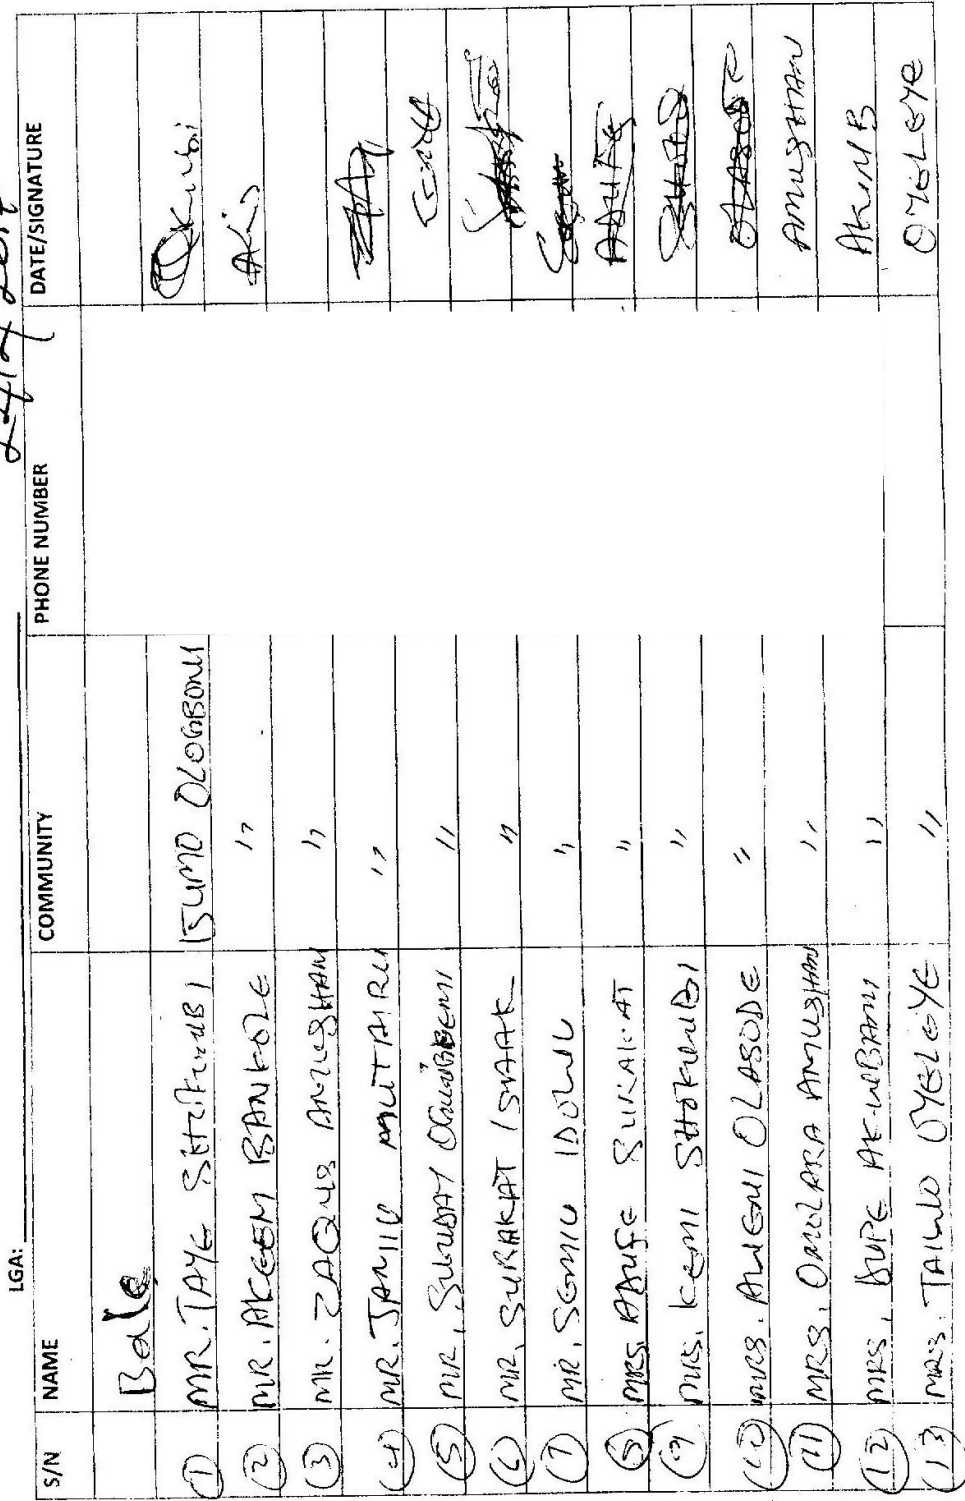 LGA:
S/N NAME COMMUNITY PHONE NUMBER DATE/SIGNATURE
Bale
1 MR. TAYE ISUMO OLOGBONU
2 MR. AKEEM BANKOLE " Akis
3 MR. ZAQUS AMUSHAN "
4 MR. JAMIU MUTTAIRU "
5 MR. SUNDAY OGUNGBEMI "
6 MR. SURAKAT ISHAAK "
7 MR. SEMIU IDOWU "
8 MRS. ADUFE SURAKAT " ADUFE
9 MRS. KEMI SHOKUNBI "
10 MRS. OLASODE "
11 MRS. OMOLARA AMUSHAN " AMUSHAN
12 MRS. DUPE AKINBAMI " AKIN B
13 MRS. TAIWO OYELEYE " OYELEYE